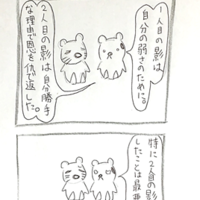 1人目の影は
自分の弱さのために。
2人目の影は自分勝手
な理由で恩を仇で返した。
特に2人目の影
したことは最